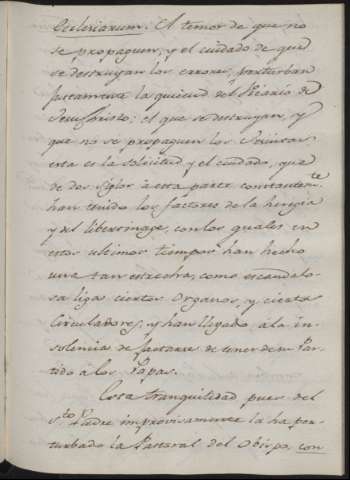 Ecclesiarum. El temor de que no
se propaguen, y el cuidado de que
se destruyan los errores, perturban
justamente la quietud del Vicario de
Jesu Christo; el que se destruyan, y
que no se propaguen los
esta es la solicitud y el cuidado, que
de dos siglos à esta parte constantem.te
han tenido los factores de la heregia
y del libertinage, con los quales en
estos ultimos tiempos han hecho
una tan estrecha, como escandalo-
sa liga ciertos Organos, y ciertos
Circuladores, y han llegado à la in-
solencia de jactarse de tener de su Par-
tido à los Papas.
Esta tranquilidad pues del
S.to Padre improvisamente la ha per-
turbado la Pastoral del Obispo, con